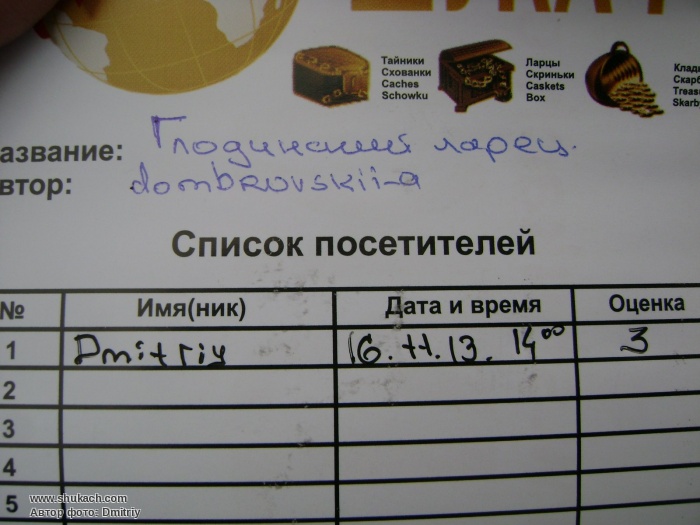 Тайники
Схованки
Caches
Schowku
Ларцы
Скриньки
Caskets
Box
азвание:
втор: dombrovskii-a
ларец.
Список посетителей
№ Имя(ник) Дата и время Оценка
1 Dmitriy 16.11.13. 14⁰⁰ 3
2
3
4
5
www.shukach.com
Автор фото: Dmitriy